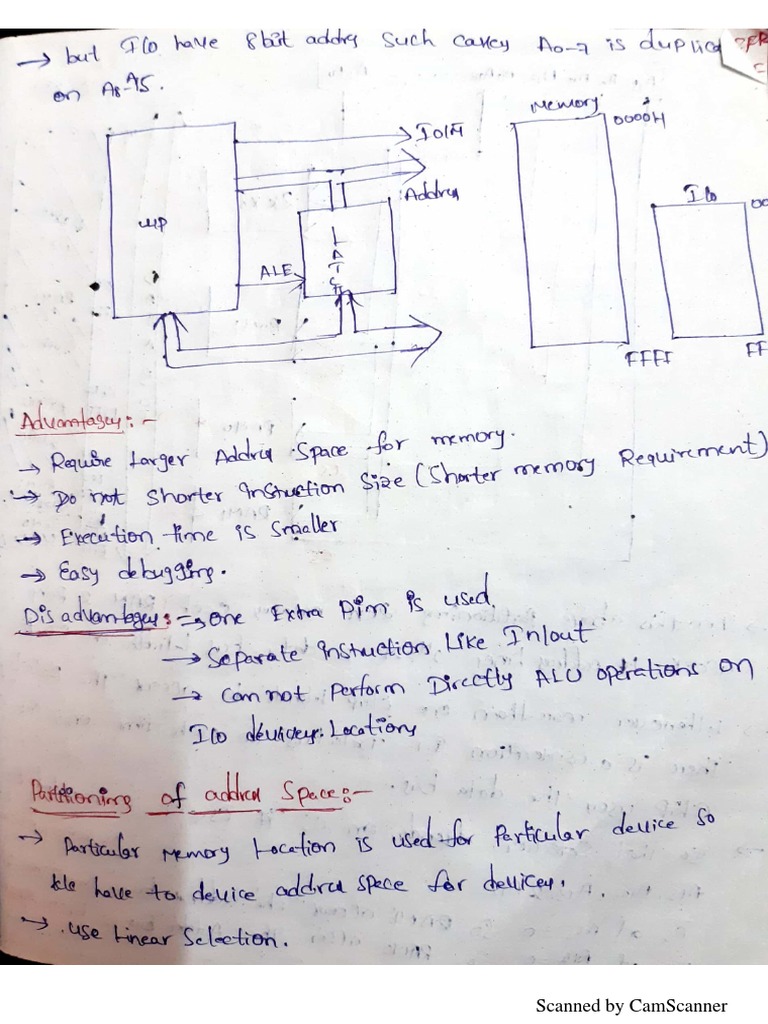 → but I/O have 8bit addres such casey A0-7 is duplic
on A8-A5.
Memory
0000H
IO/M
I/o
00
Address
μp
LATCH
ALE
FFFF
FF
Advantages:-
→ Require Larger Address Space for memory.
→ Do not Shorter instruction Size (Shorter memory Requirement)
→ Execution time is Smaller
→ Easy debugging.
Disadvantages:→ one Extra Pin is used.
→ Separate instruction Like In/out
→ Can not perform Directly ALU operations on
I/O devices Locations
Partitioning of address Space:-
→ Particular Memory Location is used for Particular device so
We have to device address space for devices.
→ use Linear Selection.
Scanned by CamScanner